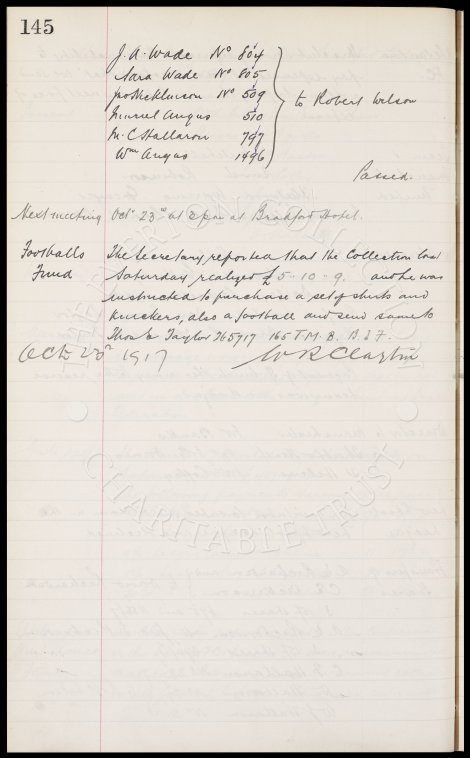 145
J. A. Wade No 804
Sara Wade No 805
Jno McKlinson No 509
Muriel Angus 510
M. C Hallaron 797
Wm Angus 1496
to Robert Wilson
Passed.
Next meeting Octr 23rd at 2 pm at Bradford Hotel.
Footballs Fund
The Secretary reported that the Collection last
Saturday realized £5-10-9. and he was
instructed to purchase a set of shirts and
knickers, also a football and send same to
Thos Taylor 765717 165 T.M.B. B.E.F.
Oct 23rd 1917 W R Clayton
THE EVERTON COLLECTION
CHARITABLE TRUST